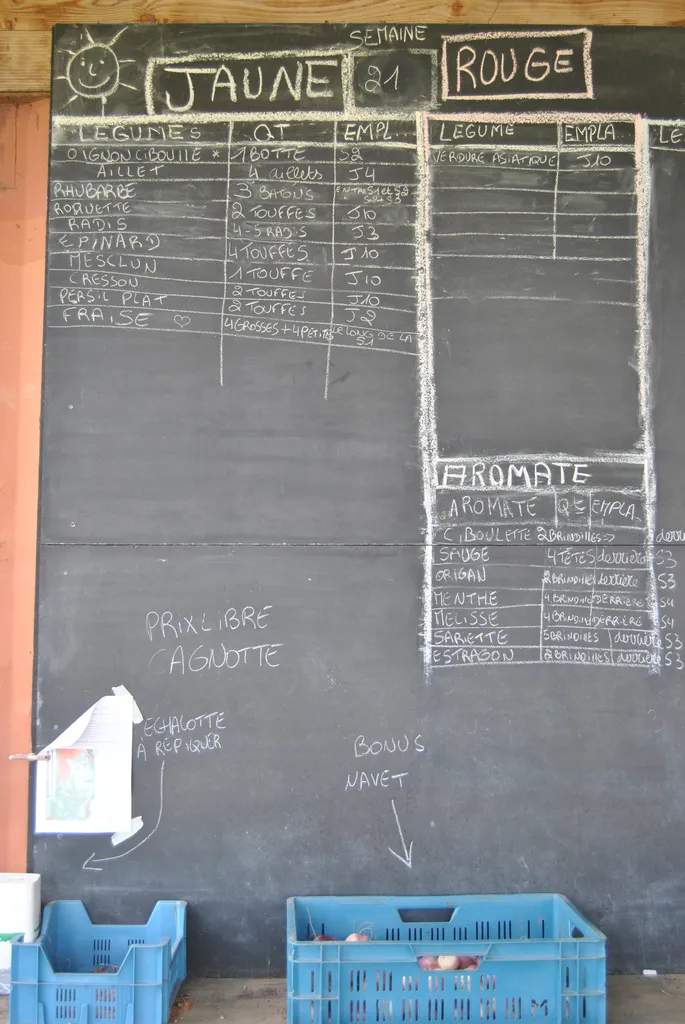 SEMAINE
JAUNE 21 ROUGE
LEGUMES QT EMPL...
OIGNON CIBOULLE * 1 BOTTE S2
AILLET 4 aillets J4
RHUBARBE 3 BATONS ENTRE S1 et S2
ROQUETTE 2 TOUFFES J10
RADIS 4-5 RADIS J3
EPINARD 4 TOUFFES J10
MESCLUN 1 TOUFFE J10
CRESSON 2 TOUFFES J10
PERSIL PLAT 2 TOUFFES J2
FRAISE ♡ 4 GROSSES + 4 PETITES LE LONG DE LA S1
LEGUME EMPLA... LE
VERDURE ASIATIQUE J10
AROMATE
AROMATE QT EMPLA
CIBOULETTE 2 BRINDILLES →
SAUGE 4 TETES derriere S3
ORIGAN 2 BRINDILLES derrière S3
MENTHE 4 BRINDILLES DERRIERE S4
MELISSE 4 BRINDILLES DERRIERE S4
SARIETTE 5 BRINDILLES derrière S3
ESTRAGON 2 BRINDILLES derrière S3
PRIX LIBRE
CAGNOTTE
ECHALOTTE
A REPIQUER
BONUS
NAVET